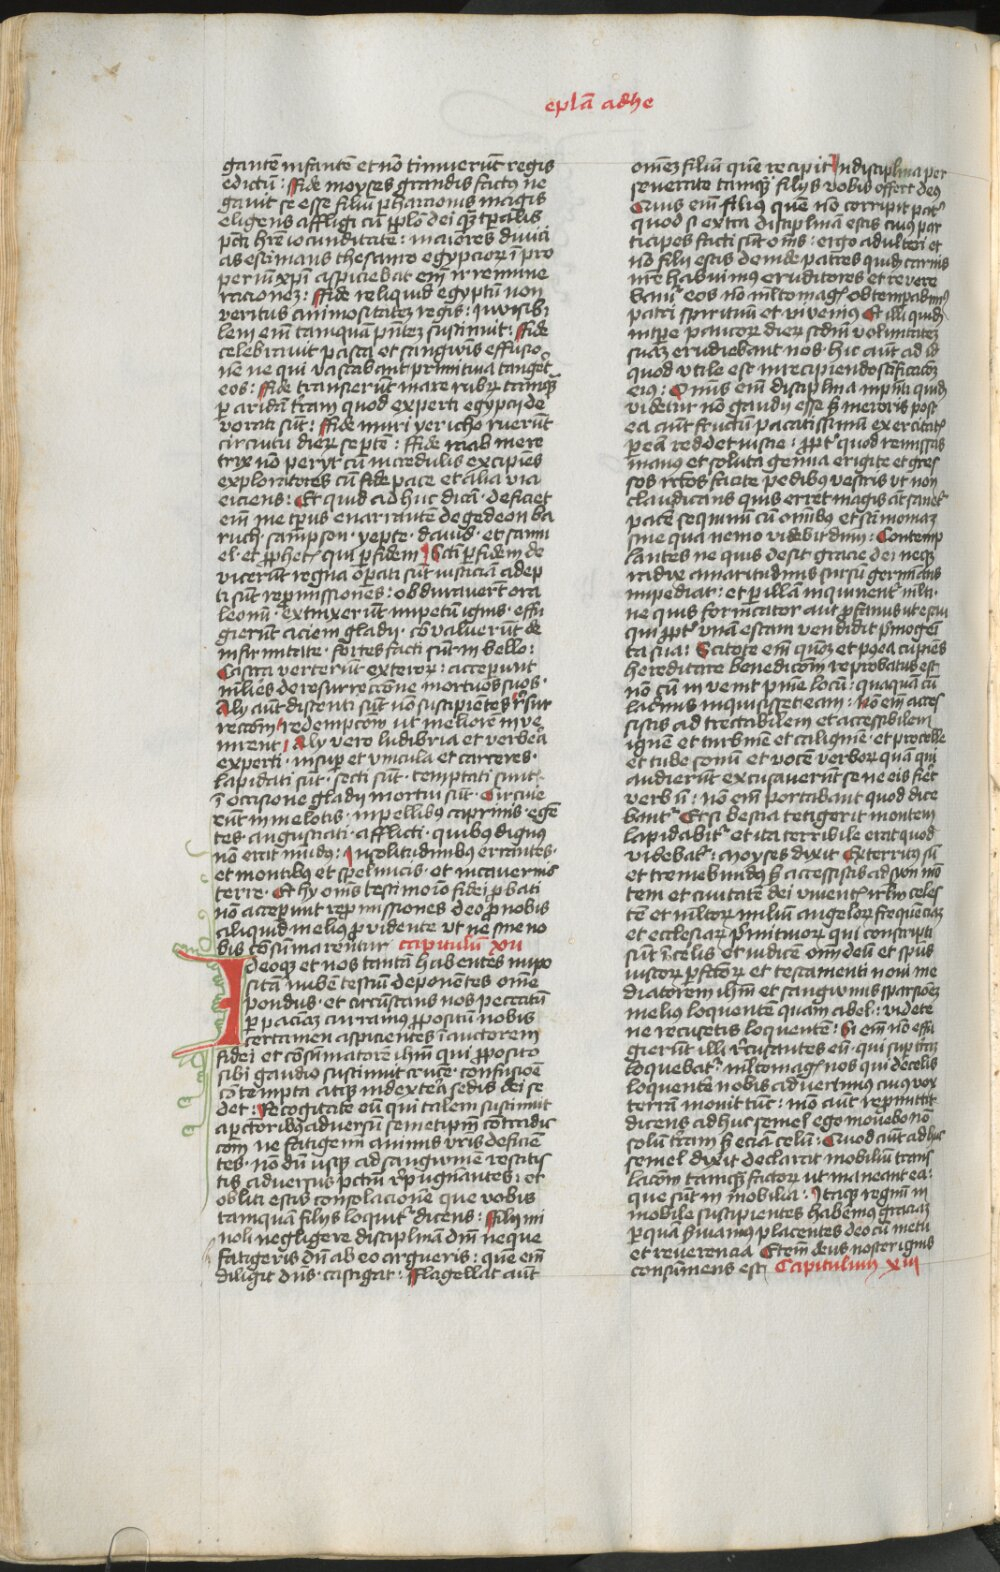 eplā adhe
gantē infantē et nō timuerūt regis
edictū : ffide moyses grandis factꝰ ne
gauit se esse filiū pharaonis magis
eligens affligi cū pplo dei qȝ tꝑalis
pcti hr̄e iocunditatē : maiores diuici
as estimans thesauro egypcioꝝ īpro
periū xp̄i aspiciebat em̄ ī remune
racionez : ffide reliquid egyptū non
veritus animositatez regis : īuisibi
lem em̄ tamquā pn̄tez sustinuit : ffide
celebrauit pasca et sangwīs effusio
nē ne qui vastabant primitiua tangēt
eos : ffide transierūt mare rubꝝ tamqȝ
ꝑ aridā tr̄am quod experti egypcij de
vorati sūt : ffide muri yericho ruerūt
circuitu dieꝝ septē : ffide raab mere
trix nō peryt cū incredulis excipiēs
exploratores cū fide pace et alia via
eiciens : Et quid ad huc dicā · deficiet
em̄ me tꝑus enarrantē de gedeon ba
ruch · sampson · yepte · dauid · et samu
el · et ꝓphetꝭ qui ꝑ fidem Scti ꝑ fidem de
vicerūt regna oꝑati sūt iusticiā adep
ti sūt repromissiones : obdurauerūt ora
leonū · extinxerūt impetū ignis · effu
gierūt aciem gladij · cōvaluerūt de
infirmitate · fortes facti sūt in bello :
Castra verterūt exteroꝝ : acceperunt
mlies de resurreccione mortuos suos ·
Aly aūt distenti sūt nō suscipientes rsur
reccōm redempcōm ut meliorē inve
nirent Aly vero ludibria et verbera
experti · insuꝑ et vincula et carceres ·
lapidati sūt · secti sūt · temptati sunt ·
ī occisione gladij mortui sūt · Circuie
rūt in melotis · in pellibꝰ caprinis · egē
tes · angustiati · afflicti · quibꝰ dignus
nō erat mūdꝰ : In solitudinibꝰ errantes ·
et montibꝰ et speluncis · et in cauernis
terre · Et hy om̄s testimoīo fidei ꝓbati
nō acceperunt repromissiones deo ꝓ nobis
aliquid melius ꝓvidente vt ne sine no
bis cōsūmarentur capitulū xij
Ideoqȝ et nos tantā habentes inpo
sitā nubē testiū deponentes omē
pondus · et circūstans nos peccatū
ꝑ paciaȝ curramꝰ ꝓpositū nobis
certamen aspicientes ī auctorem
fidei et cōsūmatorē ihm̄ qui ꝓposito
sibi gaudio sustinuit crucē · confusioē
cōtempta atqȝ in dextera sedis dei se
det : Recogitate eū qui talem sustinuit
a pctoribꝰ adversū semetipm̄ contradic
cōm ne fatigemi animis vris deficiē
tes · nō dū usqȝ ad sangwinē restitis
tis adversus pctm̄ rpugnantes : et
obliti estis consolacionē que vobis
tamquā filijs loquitᷣ dicens : ffili mi
noli negligere disciplinā dn̄i neque
fatigeris dū ab eo argueris : quē em̄
diligit dn̄s · castigat : fflagellat aūt
omēz filiū quē recipit In disciplina per
severate tamqȝ filijs vobis offert deꝰ
Quis em̄ filiꝰ quē nō corripit patᷣ
quod si extra disciplinā estis cuiꝰ par
ticipes facti sūt om̄s : ergo adulteri et
nō filij estis deinde patres quidē carnis
nr̄e habuimꝰ eruditores et revere
bamᷣ eos nō multomagꝭ obtemꝑabimꝰ
patri spirituū et vivemꝰ Et illi quidē
in tꝑe paucoꝝ dieꝝ scdm̄ voluntatez
suāz erudiebant nos · hic aūt ad id
quod vtile est in recipiendo sctificacōȝ
eiꝰ : Omīs em̄ disciplina in pn̄ti quidē
videtur nō gaudij esse sȝ meroris post
ea aūt fructū pacatissimū exercitatꝭ
ꝑ eā reddet iusticie : ꝓptᷣ quod remissas
manꝰ et soluta genua erigite et gres
sos rectos facite pedibꝰ vestris ut non
claudicans quis erret magis aūt sanetᷣ
pacē sequimī cū omībꝰ et scīmoniaȝ
sine qua nemo videbit dm̄ : Contemp
lantes ne quis desit gracie dei neqȝ
radix amaritudinis sursū germīans
impediat : et ꝑ illam inquinentᷣ mlti ·
ne quis fornicator aut ꝓfanus ut esau
qui ꝓptᷣ vnā escam vendidit pmogēi
ta sua : Scitote em̄ quōȝ et postea cupiēs
hereditare benedictōm reprobatus est
nō em̄ invenit pnīe locū : quaquā cū
lacrimis inquisisset eam : nō em̄ acces
sistis ad tractabilem et accessibilem
ignē et turbinē et caliginē · et procelle
et tube sonū et vocē verboꝝ quā qui
audierūt excusauerūt se ne eis fiet
verbū : nō em̄ portabant quod dice
bantᷣ Et si bestia tetigerit montem
lapidabitᷣ et ita terribile erat quod
videbatᷣ : moyses dixit Exterritus sū
et tremebundꝰ sȝ accessistis ad syon mō
tem et ciuitatē dei viuentꝭ irlm̄ celes
tē et multoꝝ miliū angeloꝝ frequēciaȝ
et ecclesiaꝝ pmitiuoꝝ qui conscripti
sūt ī celis et iudicē om̄ deū et spūs
iustoꝝ ꝑfectoꝝ et testamenti noui me
diatorem ihm̄ et sangwinis sparsiōeȝ
melius loquentē quam abel : videte
ne recusetis loquentē : Si em̄ nō effu
gierūt illi rcusantes eū · qui suꝑ tr̄aȝ
loquebatᷣ multomagꝭ nos qui de celis
loquentē nobis advertimus cuiꝰ vox
terrā mouit tūc : mō aūt repmittit
dicens adhuc semel ego mouebo nō
solū tr̄am sȝ eciā celū : Quod aūt adhuc
semel dixit declarat mobiliū trans
lacōm tamqȝ factoꝝ ut maneant ea :
que sūt inmobilia : Itaqȝ regnū in
mobile suscipientes habemꝰ graciaȝ
ꝑ quā ſuiamus placentes deo cū metu
et reuerencia Etem̄ deus noster ignis
consūmens est Capitulum xiij